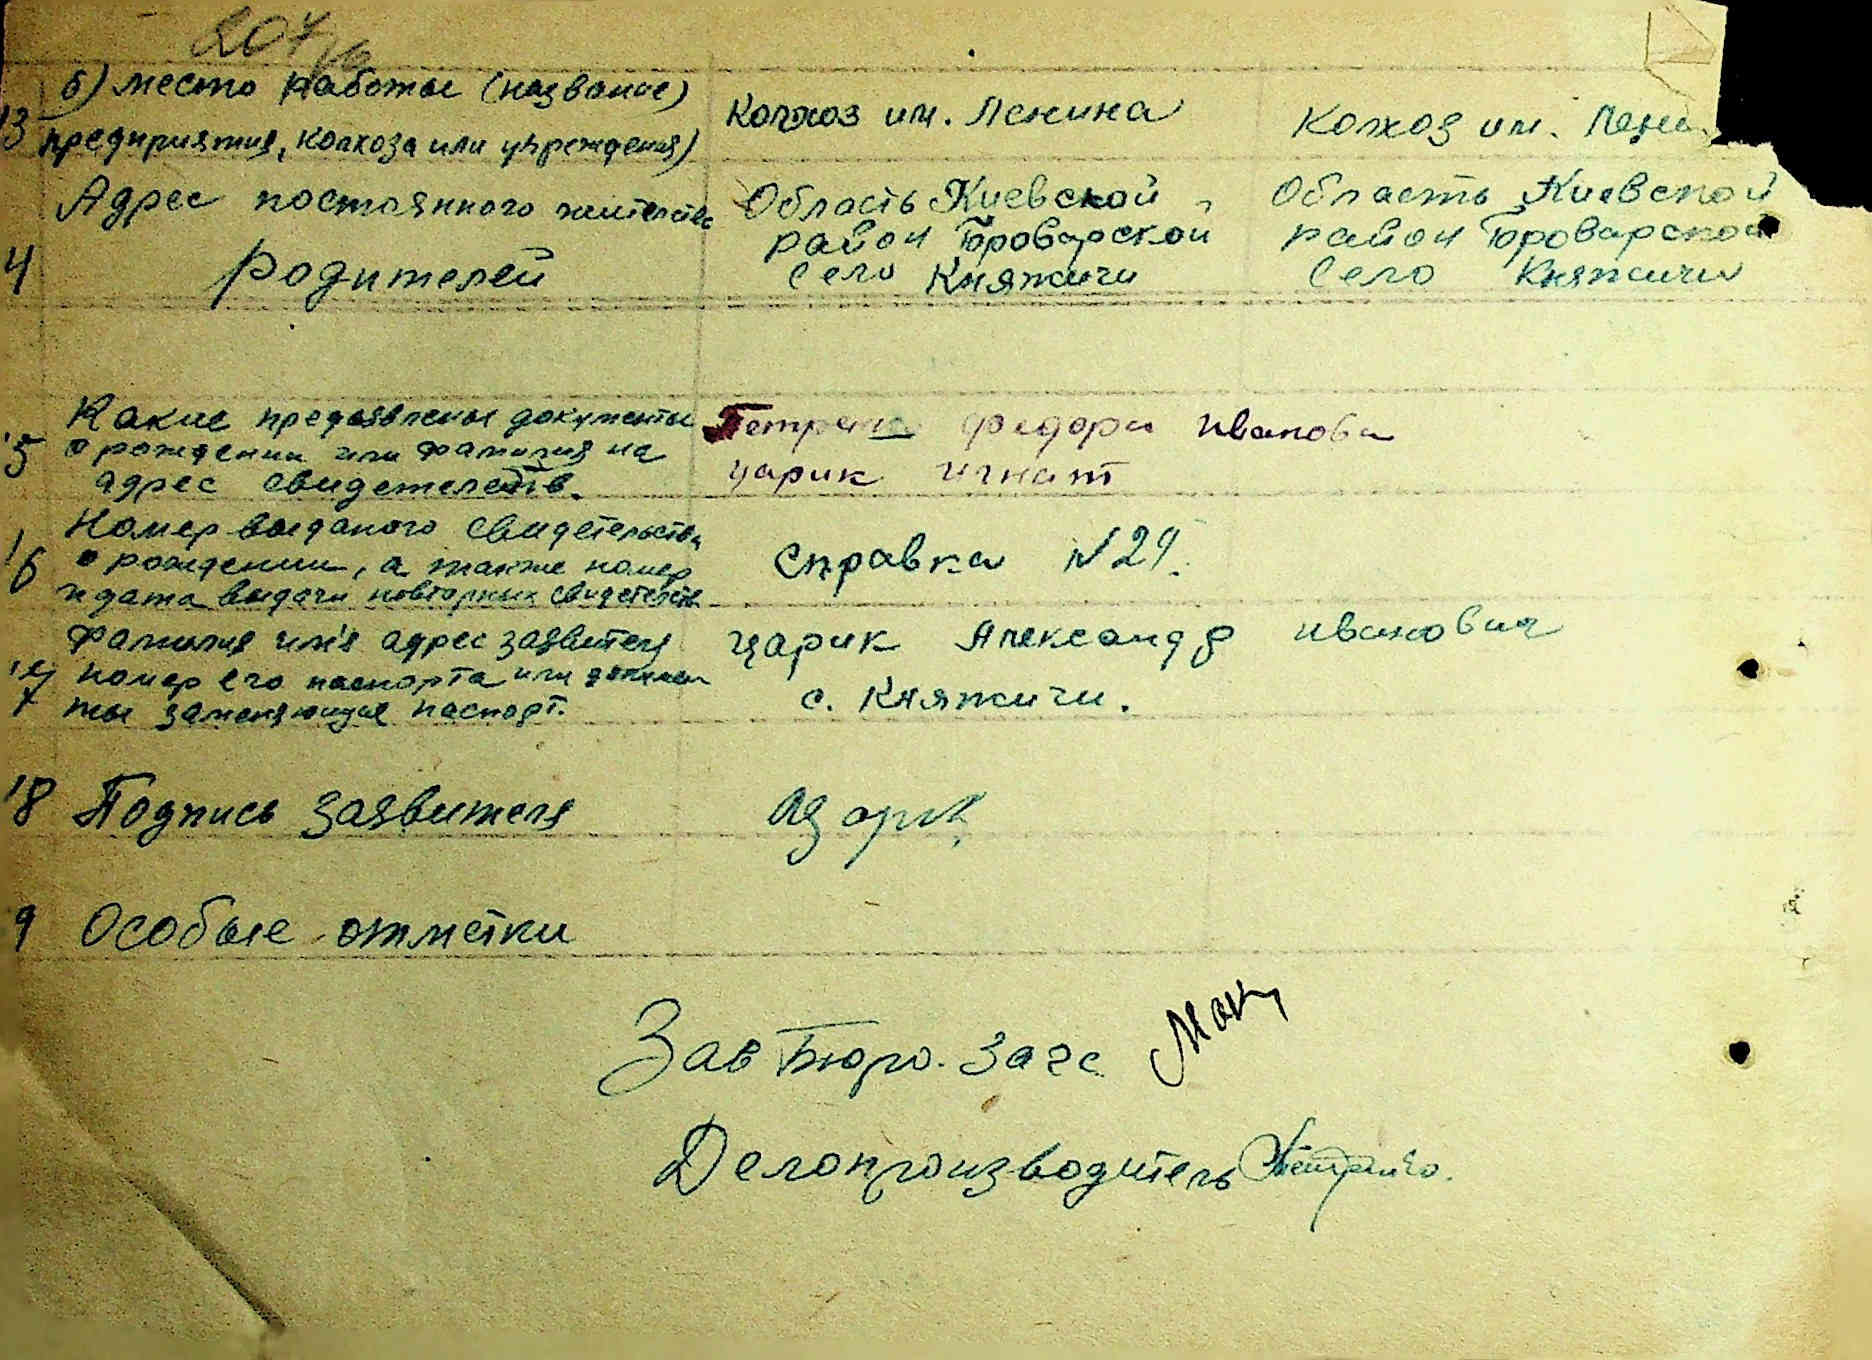 207
13 б) место работы (название)
предприятия, колхоза или учреждения)
Колхоз им. Ленина
Колхоз им. Лени
4 Адрес постоянного жительства
Родителей
Область Киевской
район Броварской
Село Княжичи
Область Киевской
район Броварской
Село Княжичи
15 Какие предъявлены документы
о рождении или фамилия на
адрес свидетелств.
Федора Иванова
Царик Игнат
16 Номер выданого свидетельства
о рождении, а также номер
и дата выдачи повторных свидетельств
Справка №24.
17 Фамилия им'я адрес заявителя
номер его паспорта или докумен
ты заменяющие паспорт.
Царик Александр Иванович
с. Княжичи.
18 Подпись заявителя
Царик
9 Особые отметки
Зав Бюро. Загс
Делопроизводитель